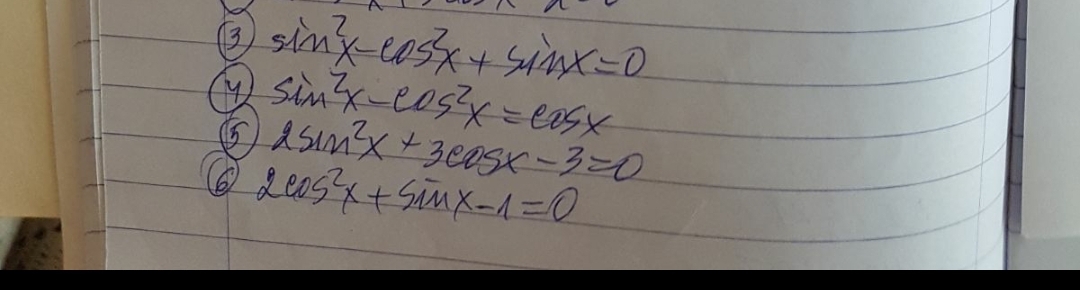 ③ sin²x-cos²x + sinx=0
④ sin²x-cos²x = cosx
⑤ 2sin²x + 3cosx-3=0
⑥ 2cos²x + sinx-1=0